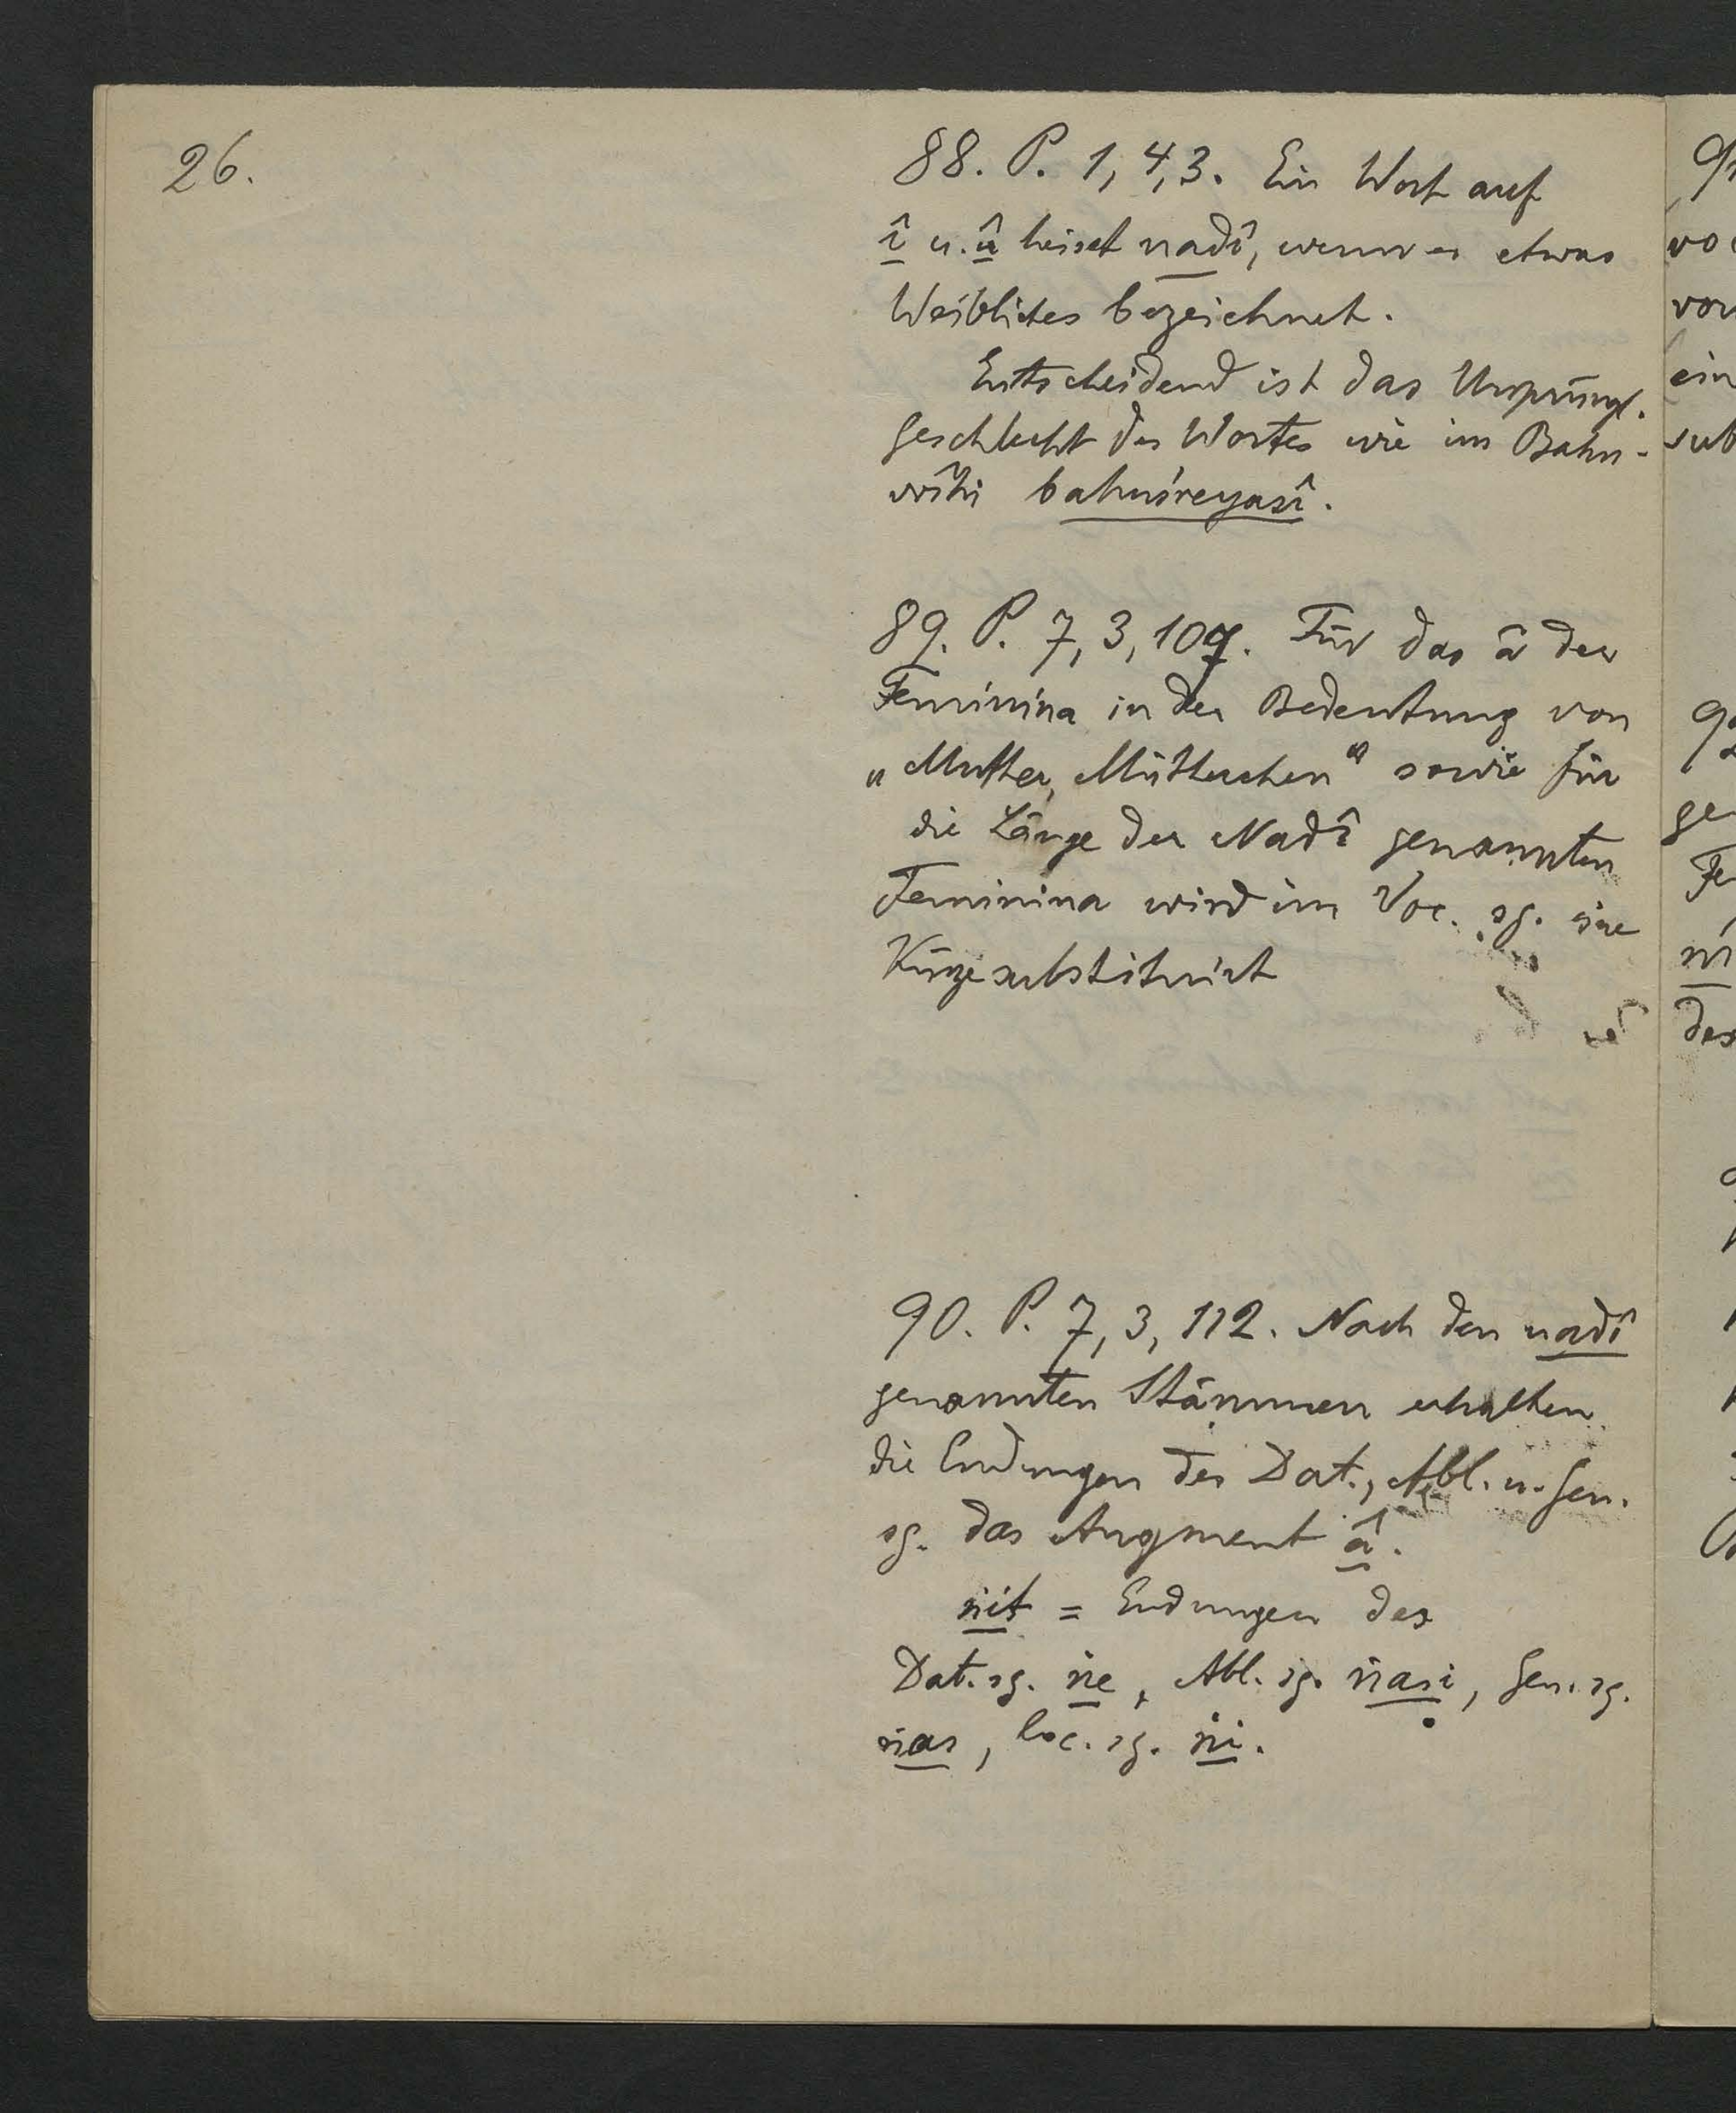 26.
88. P. 1,4,3. Ein Wort auf
î u. û heisst nadî, wenn es etwas
Weibliches bezeichnet.
Entscheidend ist das Ursprüngl.
Geschlecht des Wortes wie im Bahu-
vrîhi bahuśreyasî.
89. P. 7, 3, 107. Für das â der
Feminina in der Bedeutung von
„Mutter, Mütterchen“ sowie für
die Länge der Nadî genannten
Feminina wird im Voc. sg. eine
Kürze substituirt
90. P. 7, 3, 112. Nach den nadî
genannten Stämmen erhalten
die Endungen des Dat., Abl. u. Gen.
sg. das Augment â.
ṅit = Endungen des
Dat. sg. ṅe, Abl. sg. ṅasi, Gen. sg.
ṅas, Loc. sg. ṅi.